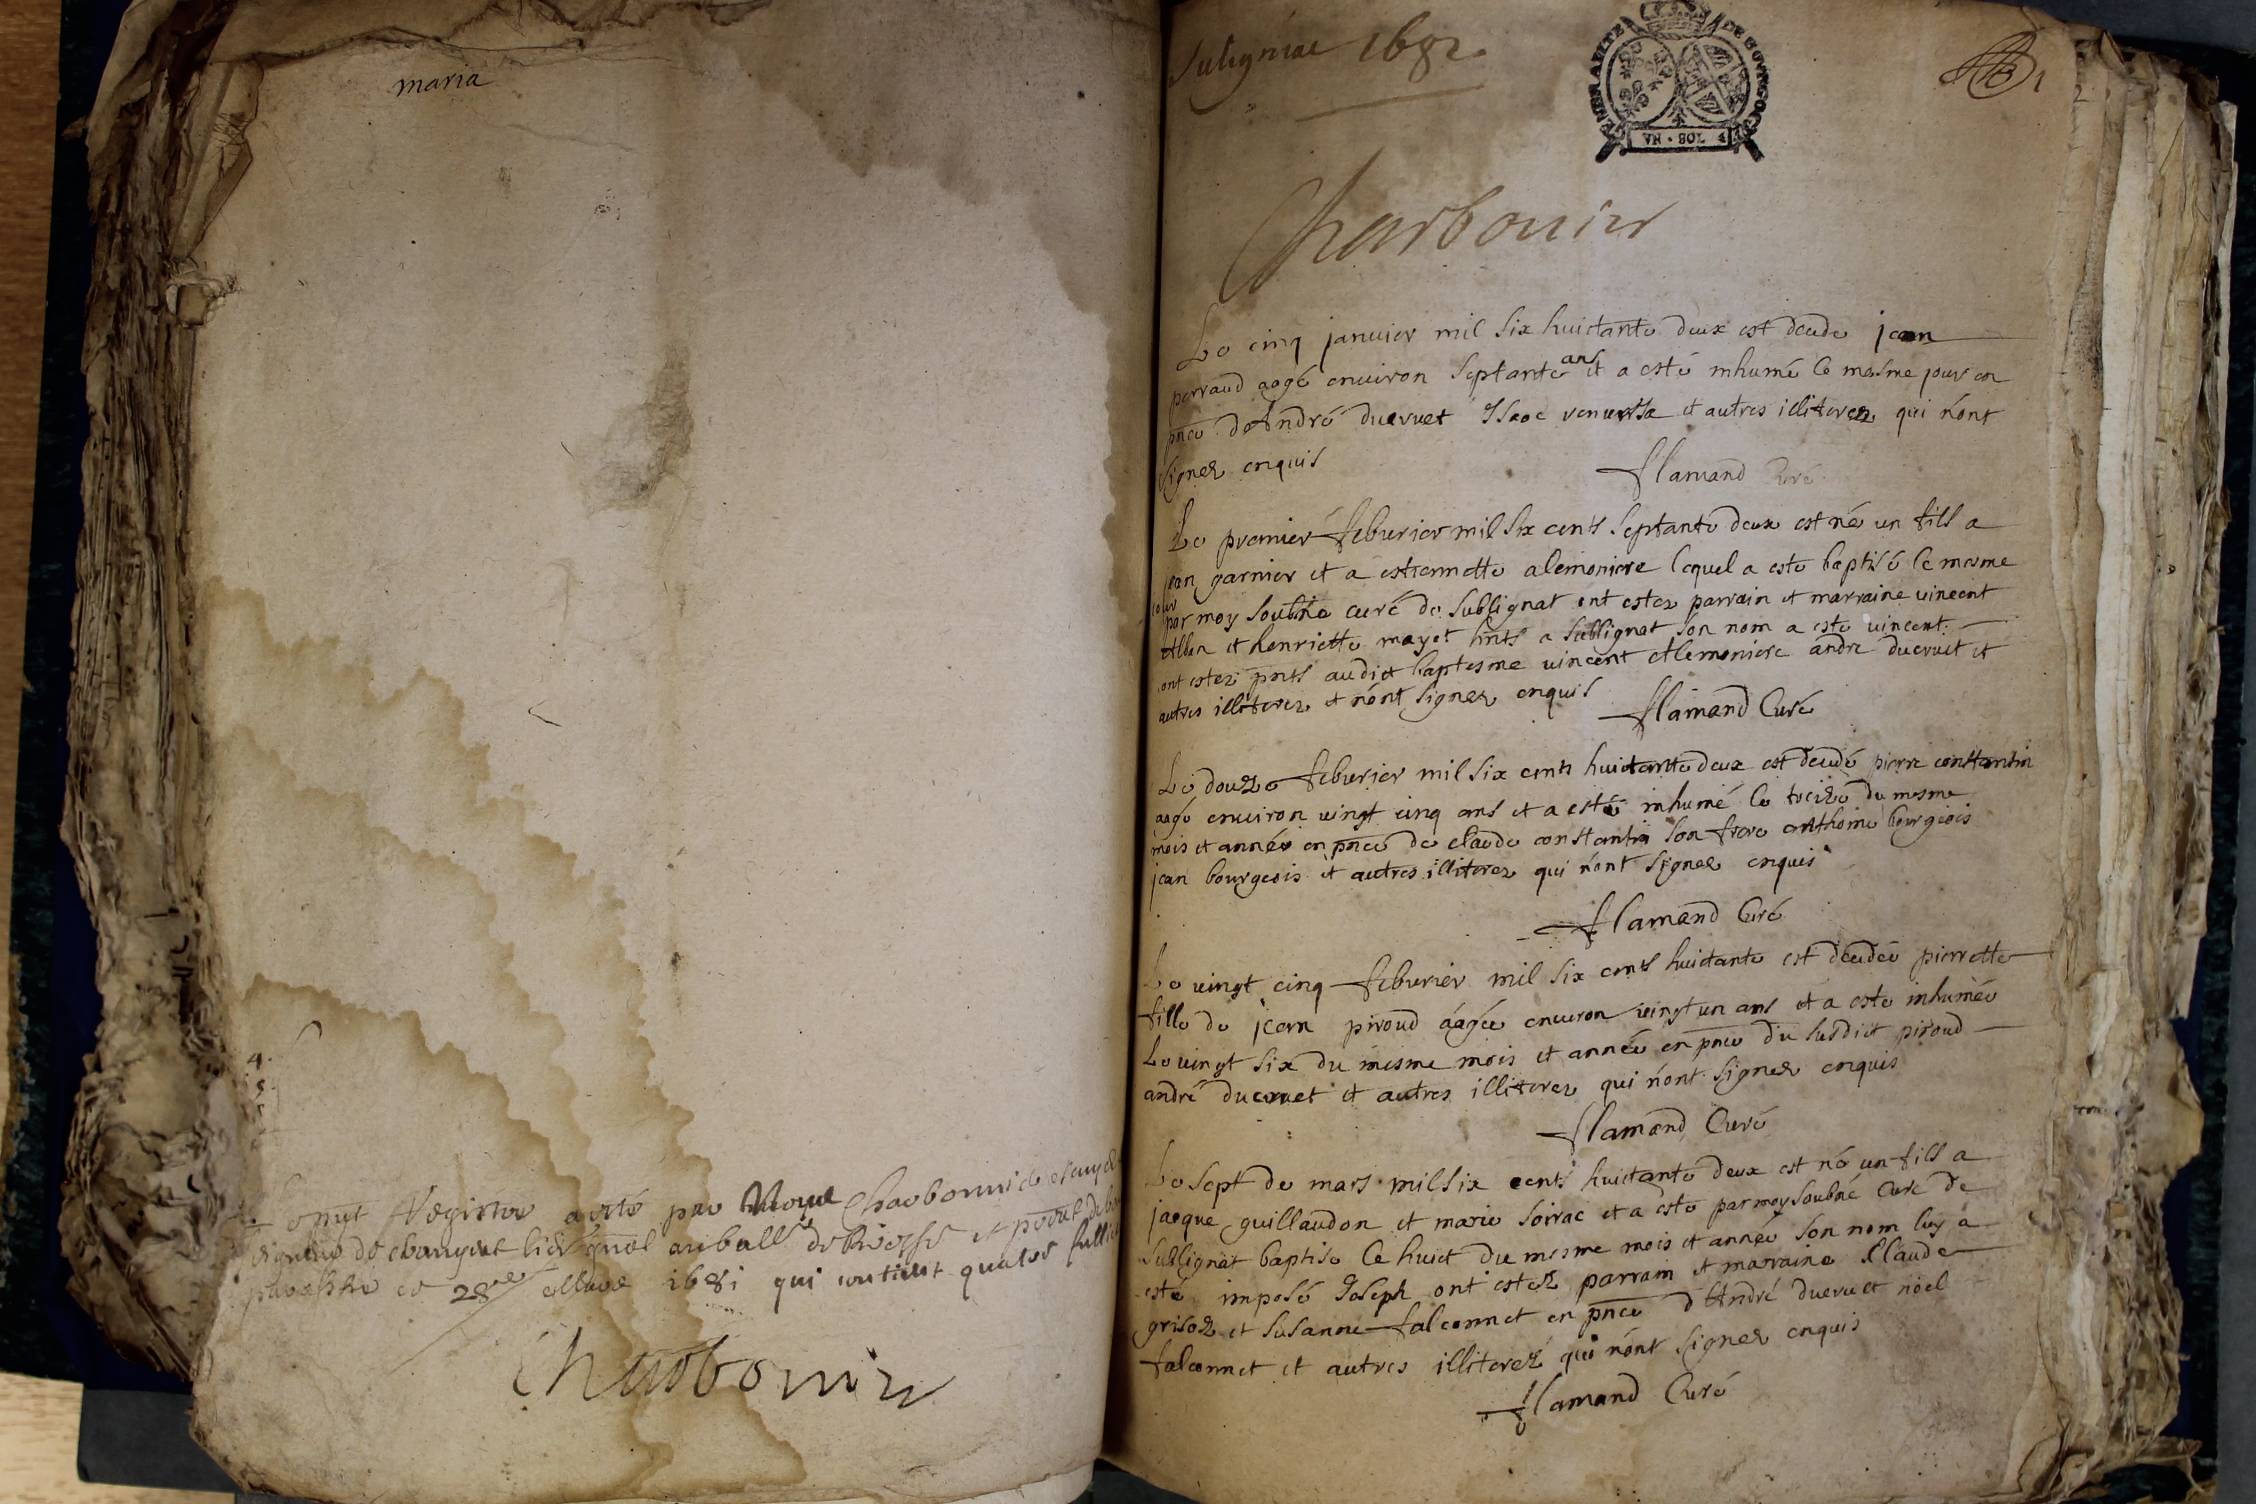 maria
pnt Registre a esté par Charbonnier
1681 qui contient quatre
Charbonier
Suligniac 1682
GENERALITE DE BOVRGOGNE
VN · SOL 4
1
Charbonier
Le cinq januier mil six huictante deux est decedé jean
perraud aagé enuiron septante ans et a esté inhumé le mesme jour en
pnce d'André ducruet Isaac et autres illiterez qui n'ont
signez enquis
flamand Curé
Le premier feburier mil six cents septante deux est né un fils a
jean garnier et a estiennette alemoniere lequel a esté baptisé le mesme
jour
par moy soubné curé de Sublignat ont estez parrain et marraine uincent
Alban et henriette mayet hnts a Sublignat son nom a esté uincent
ont estez pnts audict baptesme uincent Alemoniere andré ducruet et
autres illiterez et n'ont signez enquis
flamand Curé
Le douze feburier mil six cents huictante deux est decedé pierre constantin
aagé enuiron uingt cinq ans et a esté inhumé le treize du mesme
mois et année en pnce de claude constantin son frere anthoine bourgeois
jean bourgeois et autres illiterez qui n'ont signez enquis
flamand Curé
Le uingt cinq feburier mil six cents huictante est decedée pierrette
fille de jean piroud aagée enuiron uingt un ans et a esté inhumée
Le uingt six du mesme mois et année en pnce du susdict piroud
andré ducruet et autres illiterez qui n'ont signez enquis
flamand Curé
Le sept de mars mil six cents huictante deux est né un fils a
jacque guillaudon et marie soirac et a esté par moy soubné Curé de
Sublignat baptisé le huict du mesme mois et année son nom luy a
esté imposé Joseph ont estez parrain et marraine Claude
grisoz et susanne falconnet en pnce d'André ducruet noel
falconnet et autres illiterez qui n'ont signez enquis
flamand Curé